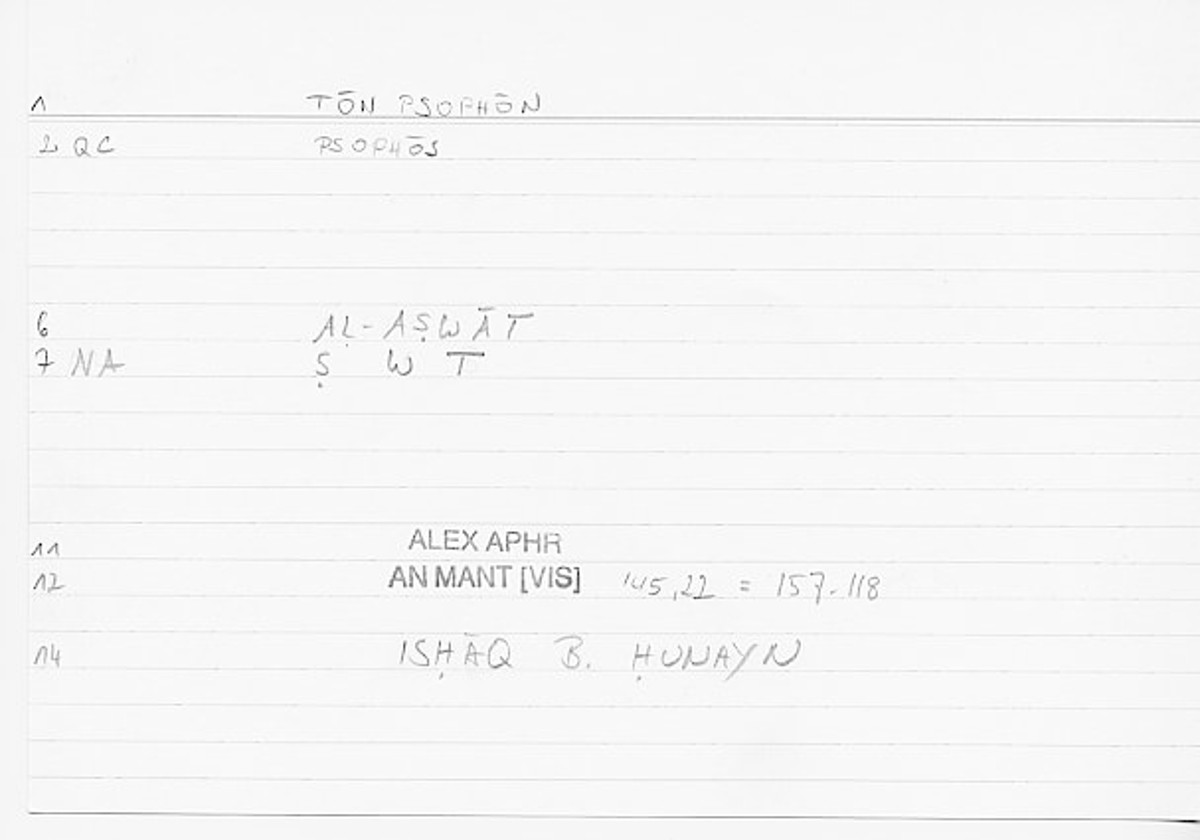 1 TŌN PSOPHŌN
2 QC PSOPHŌS
6 AḶ-AṢWĀT
7 NA Ṣ W T
11 ALEX APHR
12 AN MANT [VIS] 145,22 = 157.118
14 ISḤĀQ B. ḤUNAYN